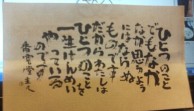 ひとつのこと
でもなか
なか思うよう
にはならぬ
ものです
だからわたしは
ひとつのことを
一生けんめい
やっている
のです